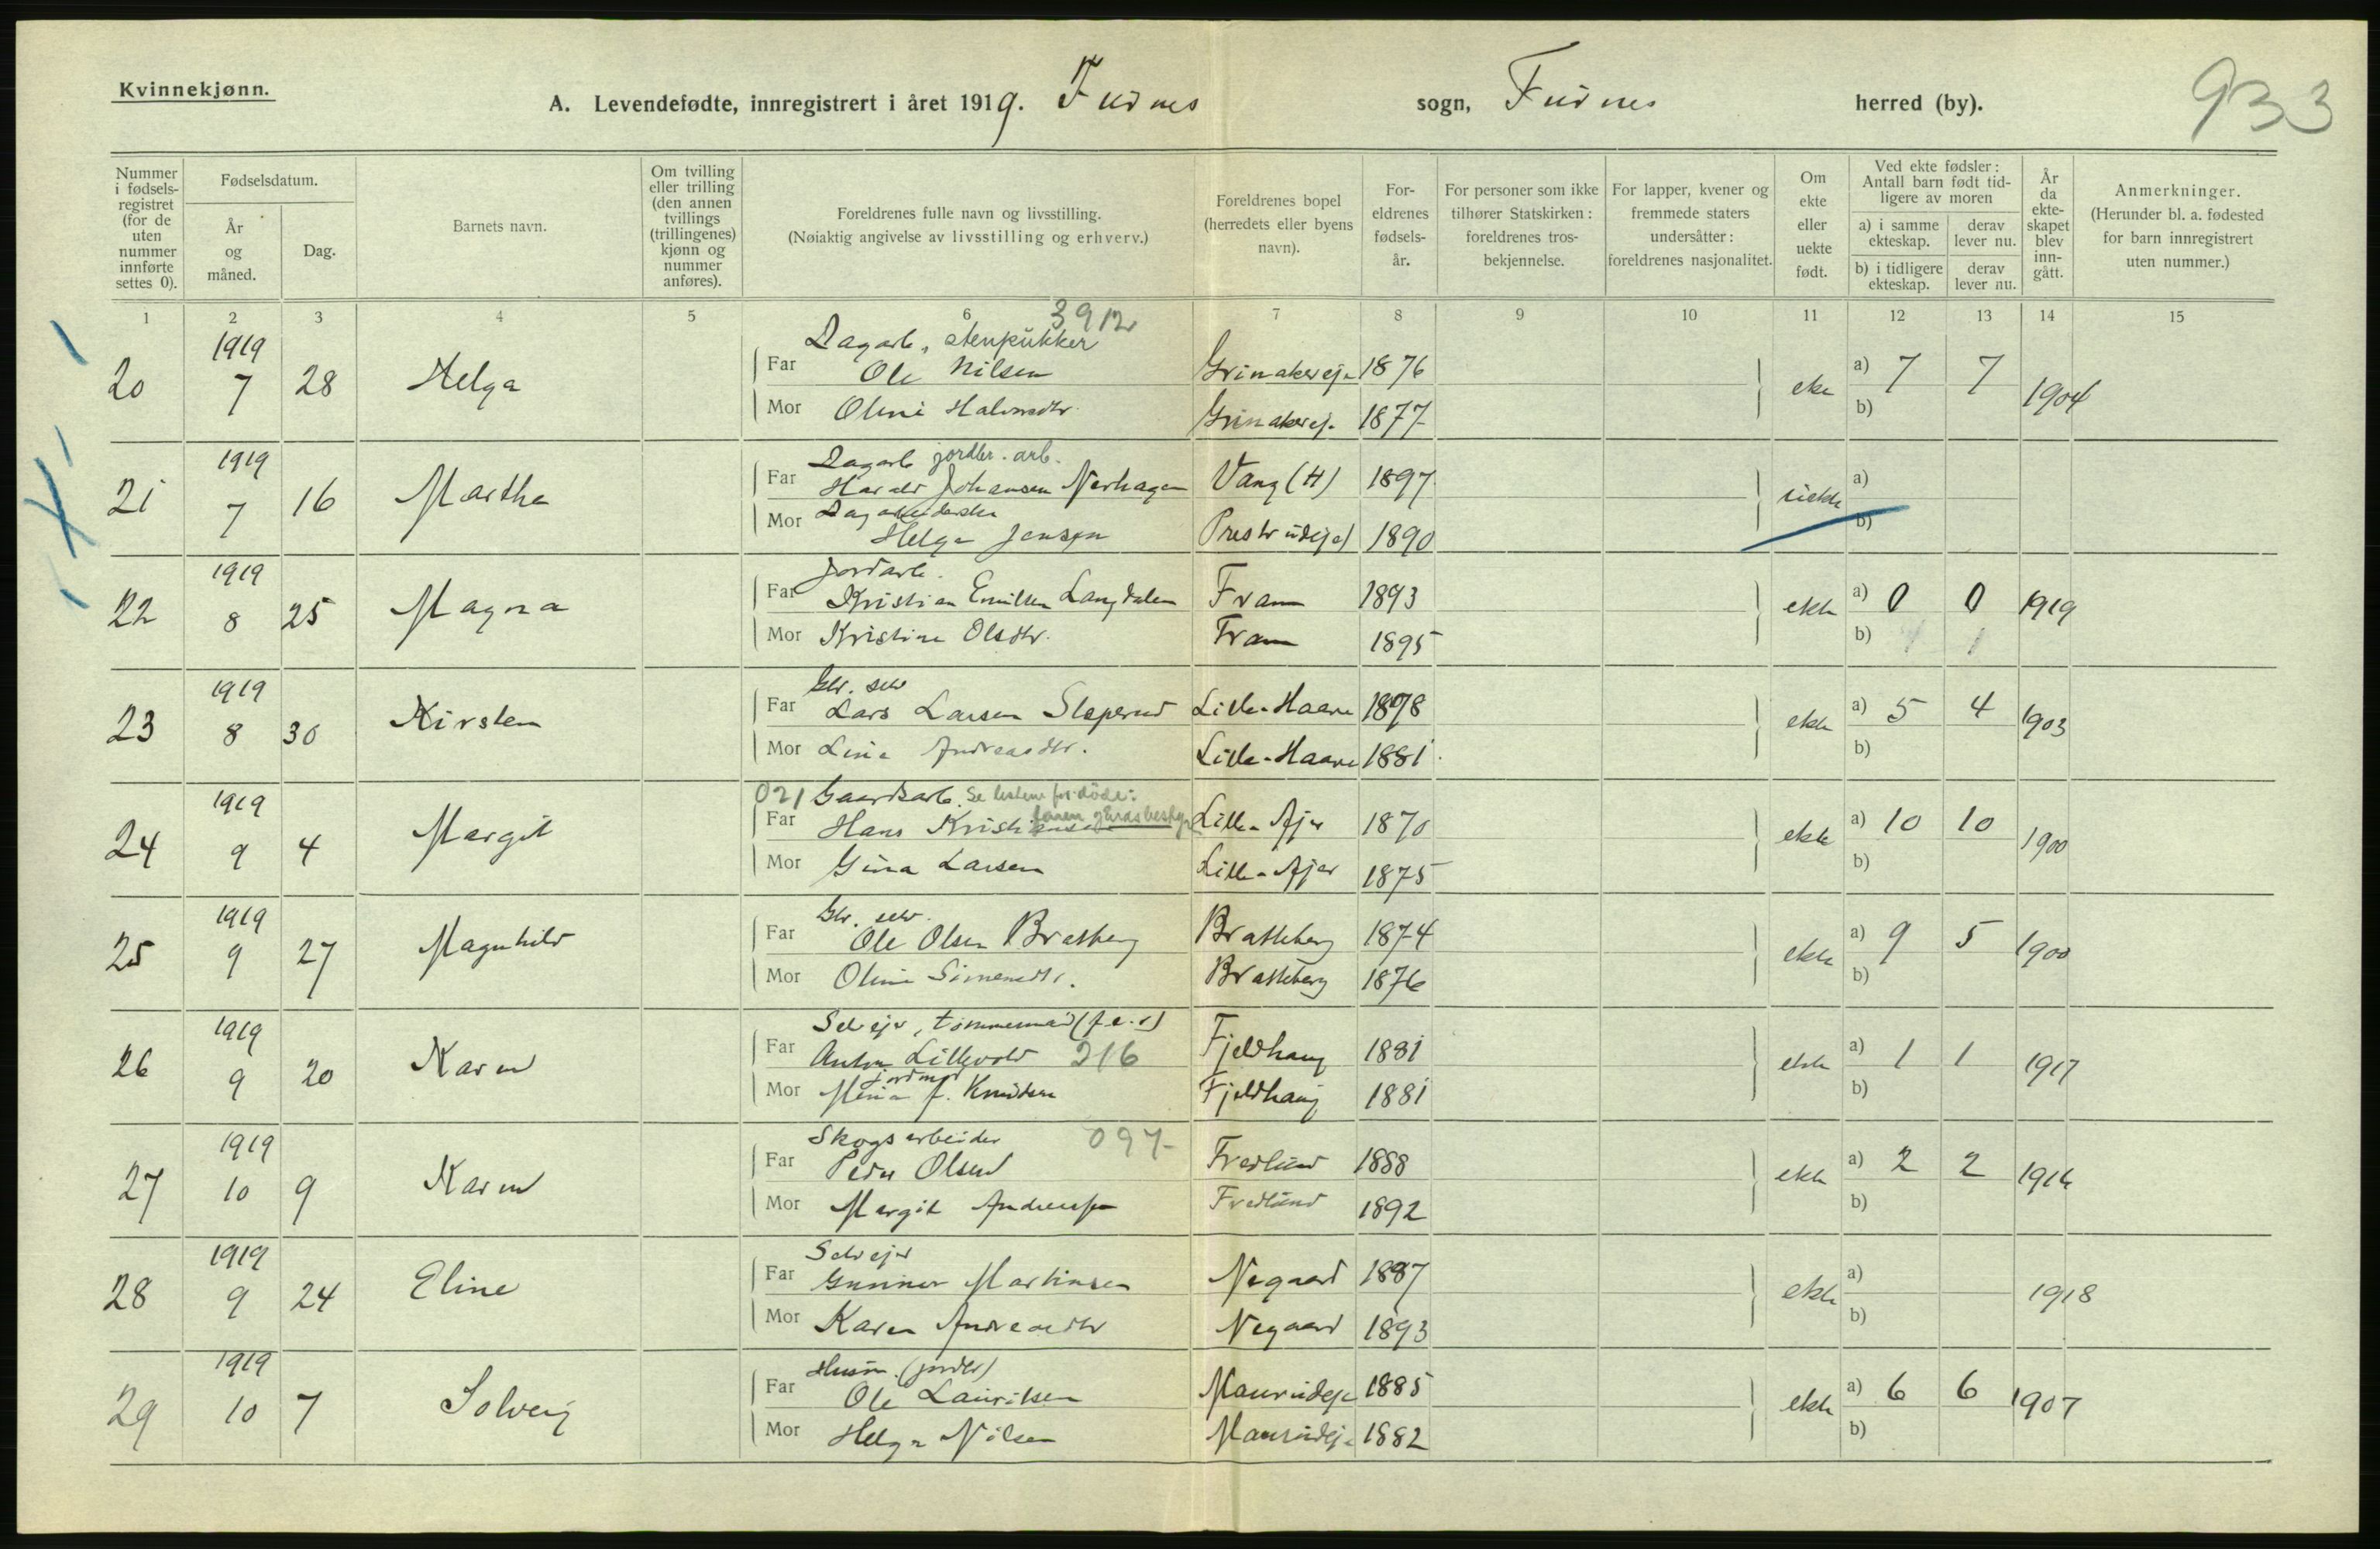 Kvinnekjønn.
A. Levendefødte, innregistrert i året 1919. Furnes sogn, Furnes herred (by).
933
Nummer i fødsels-registret (for de uten nummer innførte settes 0).
Fødselsdatum.
År og måned.
Dag.
Barnets navn.
Om tvilling eller trilling (den annen tvillings (trillingenes) kjønn og nummer anføres).
Foreldrenes fulle navn og livsstilling.
(Nøiaktig angivelse av livsstilling og erhverv.)
Foreldrenes bopel (herredets eller byens navn).
For-eldrenes fødsels-år.
For personer som ikke tilhører Statskirken: foreldrenes tros-bekjennelse.
For lapper, kvener og fremmede staters undersåtter: foreldrenes nasjonalitet.
Om ekte eller uekte født.
Ved ekte fødsler: Antall barn født tid-ligere av moren
a) i samme ekteskap.
derav lever nu.
b) i tidligere ekteskap.
derav lever nu.
År da ekte-skapet blev inn-gått.
Anmerkninger.
(Herunder bl. a. fødested for barn innregistrert uten nummer.)
1 2 3 4 5 6 7 8 9 10 11 12 13 14 15
3912
1919 Dagarb., stenpukker
20 7 28 Helga Far Ole Nilsen Grinakerej. 1876 ekte a) 7 7 1904
Mor Oline Halvorsdtr. Grinakerej. 1877 b)
1919 Dagarb jordbr. arb.
21 7 16 Martha Far Harald Johansen Nerhagen Vang (H) 1897 uekte a)
Dagarbeiderske
Mor Helga Jensen Prestrudeje 1890 b)
1919 Jordarb.
22 8 25 Magna Far Kristian Emilsen Langdalen Fram 1893 ekte a) 0 0 1919
Mor Kristine Olsdtr. Fram 1895 b) 1 1
1919 Gbr. selv
23 8 30 Kirsten Far Lars Larsen Sloperud Lille-Haave 1878 ekte a) 5 4 1903
Mor Lina Andreasdtr. Lille-Haave 1881 b)
1919 021 Gaardsarb. Se listen for døde:
faren gårdsbestyr
24 9 4 Margit Far Hans Kristiansen Lille-Ajer 1870 ekte a) 10 10 1900
Mor Gina Larsen Lille-Ajer 1875 b)
1919 Gbr. selv.
25 9 27 Magnhild Far Ole Olsen Bratberg Bratteberg 1874 ekte a) 9 5 1900
Mor Oline Simensdtr. Bratteberg 1876 b)
1919 Selvejer, tømmermand (f.e.r)
26 9 20 Karen Far Anton Lillevold 216 Fjeldhaug 1881 ekte a) 1 1 1917
jordmor
Mor Mina f. Knudsen Fjeldhaug 1881 b)
1919 Skogsarbeider 097
27 10 9 Karen Far Peder Olsen Fredlund 1888 ekte a) 2 2 1916
Mor Margit Andreassen Fredlund 1892 b)
1919 Selvejer
28 9 24 Eline Far Gunnar Martinsen Negaard 1887 ekte a) 1918
Mor Karen Andreasdtr Negaard 1893 b)
1919 Husm. (jordbr)
29 10 7 Solveig Far Ole Lauritsen Maurudeje 1885 ekte a) 6 6 1907
Mor Helga Nilsen Maurudeje 1882 b)